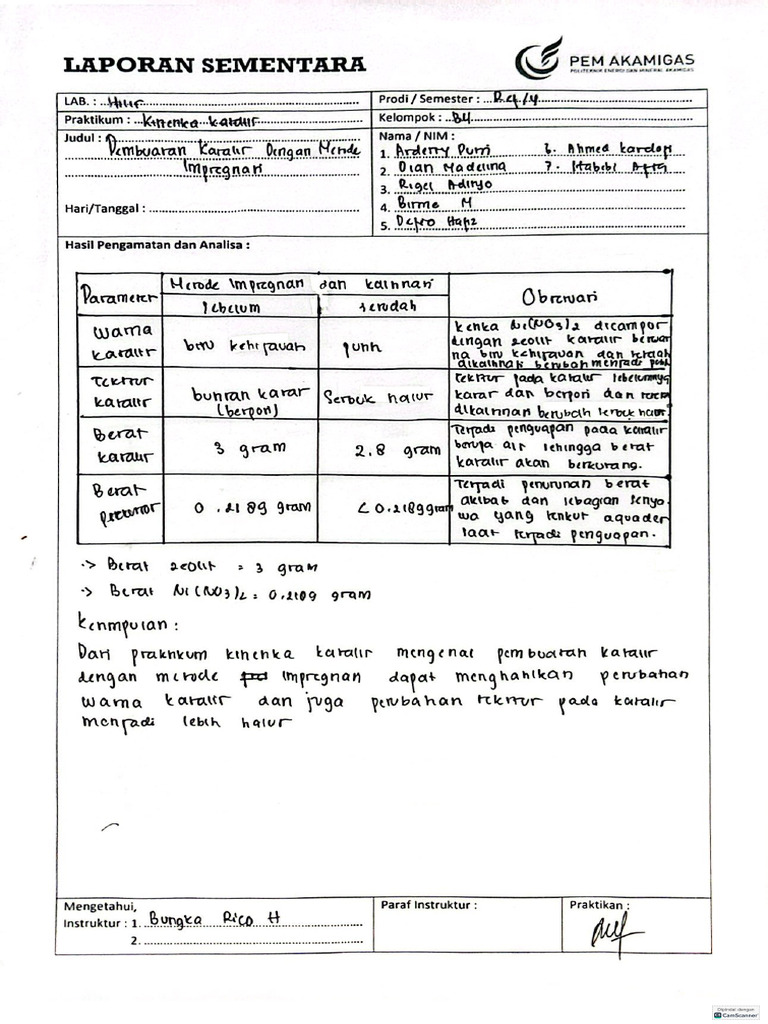 LAPORAN SEMENTARA
PEM AKAMIGAS
POLITEKNIK ENERGI DAN MINERAL AKAMIGAS
LAB. : Hilir
Prodi / Semester : Ref/4
Praktikum : Kinetika Katalis
Kelompok : B4
Judul : Pembuatan Katalis Dengan Metode
Impregnasi
Hari/Tanggal :
Nama / NIM :
1. Arderry Putri
2. Dian Madelina
3. Rigel Adityo
4. Birme M
5. Defro Hafiz
6. Ahmed
7. Habibi
Hasil Pengamatan dan Analisa :
Parameter
Metode Impregnasi dan kalsinasi
Observasi
sebelum
sesudah
Warna katalis
biru kehijauan
putih
ketika Ni(NO3)2 dicampur
dengan zeolit katalis berwar
na biru kehijauan dan setelah
dikalsinasi berubah menjadi putih
Tekstur katalis
butiran kasar
(berpori)
Serbuk halus
Tekstur pada katalis sebelumnya
kasar dan berpori dan setelah
dikalsinasi berubah serbuk halus.
Berat katalis
3 gram
2.8 gram
Terjadi penguapan pada katalis
berupa air sehingga berat
katalis akan berkurang.
Berat precursor
0.2189 gram
<0.2189 gram
Terjadi penurunan berat
akibat dan sebagian senya
wa yang terikut aquades
saat terjadi penguapan.
-> Berat zeolit = 3 gram
-> Berat Ni(NO3)2 = 0.2189 gram
Kesimpulan :
Dari praktikum kinetika katalis mengenai pembuatan katalis
dengan metode impregnasi dapat menghasilkan perubahan
warna katalis dan juga perubahan tekstur pada katalis
menjadi lebih halus
Mengetahui,
Instruktur : 1. Bungka Rico H
2.
Paraf Instruktur :
Praktikan :
Dipindai dengan
CamScanner